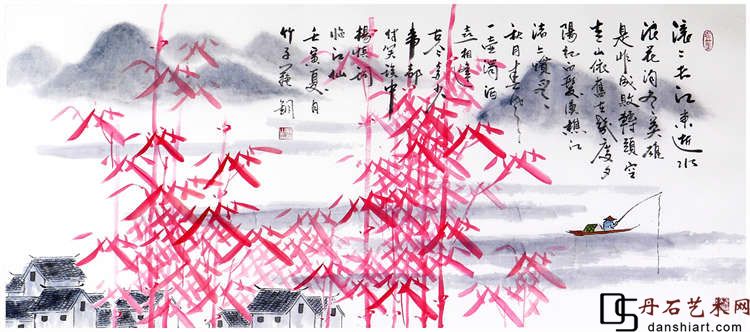 滚滚长江東逝水
浪花淘尽英雄
是非成敗轉頭空
青山依舊在幾度夕
陽红白髮漁樵江
渚上慣看
秋月春风
一壺濁酒
喜相逢
古今多少
事都
付笑談中
楊慎词
临江仙
壬寅夏月
竹子
丹石艺术网
danshiart.com